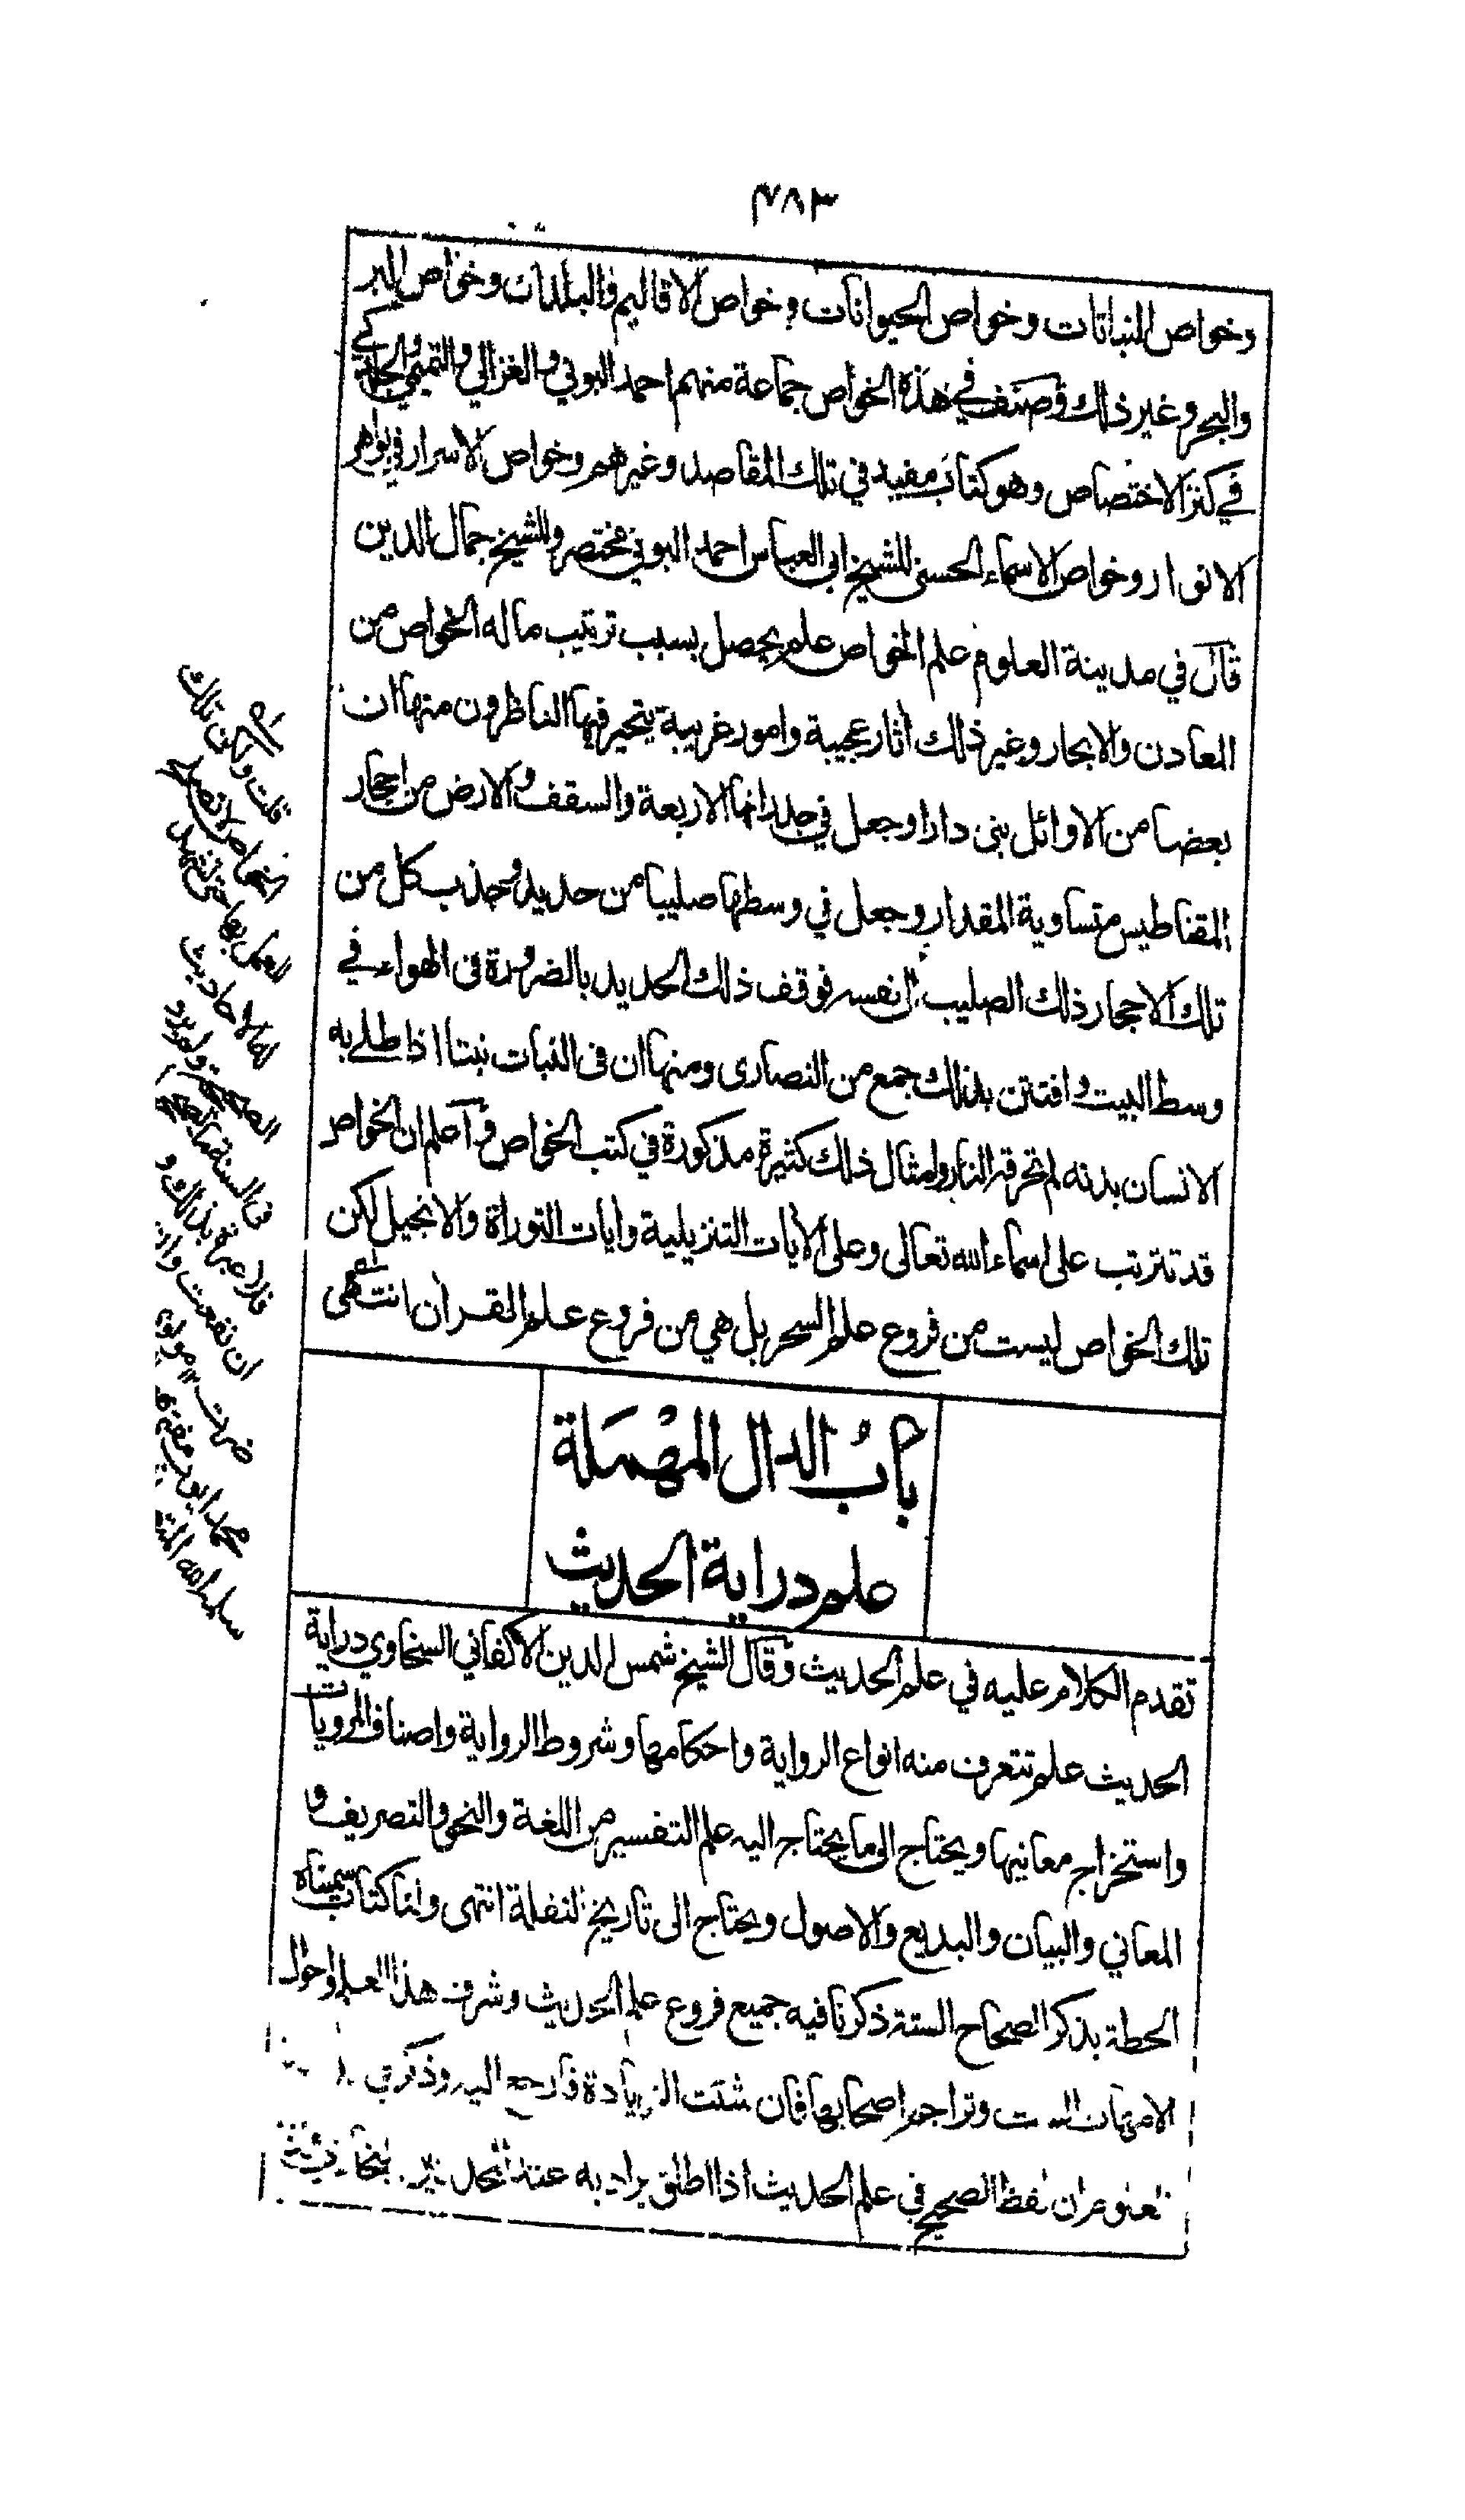 ٤٨٣
وخواص النباتات وخواص الحيوانات وخواص الاقاليم والبلدان وخواص البر
والبحر وغير ذلك وصنف في هذه الخواص جماعة منهم احمد البوني والغزالي والتميمي والجلدكي
في كنز الاختصاص وهو كتاب مفيد في تلك المقاصد وغيرهم وخواص الاسرار في بواهر
الانوار وخواص الاسماء الحسنى للشيخ ابي العباس احمد البوني مختصر وللشيخ جمال الدين
قال في مدينة العلوم علم الخواص علم يحصل بسبب ترتيب ما له الخواص من
المعادن والاحجار وغير ذلك اثار عجيبة وامور غريبة يتحير فيها الناظرون منها ان
بعضا من الاوائل بنى دارا وجعل في جدرانها الاربعة والسقف والارض من احجار
المقناطيس متساوية المقدار وجعل في وسطها صليبا من حديد وجذب كل من
تلك الاحجار ذلك الصليب الى نفسه فوقف ذلك الحديد بالضرورة في الهواء في
وسط البيت وافتتن بذلك جمع من النصارى ومنها ان في النبات نبتا اذا طلي به
الانسان بدنه لم تحرقه النار وامثال ذلك كثيرة مذكورة في كتب الخواص واعلم ان الخواص
قد تترتب على اسماء الله تعالى وعلى الايات التنزيلية وايات التوراة والانجيل لكن
تلك الخواص ليست من فروع علم السحر بل هي من فروع علم القران انتهى
باب الدال المهملة
علم دراية الحديث
تقدم الكلام عليه في علم الحديث وقال الشيخ شمس الدين الاكفاني السخاوي دراية
الحديث علم تتعرف منه انواع الرواية واحكامها وشروط الرواية واصناف المرويات
واستخراج معانيها ويحتاج الى ما يحتاج اليه علم التفسير من اللغة والنحو والتصريف و
المعاني والبيان والبديع والاصول ويحتاج الى تاريخ النقلة انتهى ولنا كتاب سميناه
الحطة بذكر الصحاح الستة ذكرنا فيه جميع فروع علم الحديث وشرف هذا العلم واحوال
الامهات الست وتراجم اصحابها فان شئت الزيادة فارجع اليه وذكر في
العنوان ان لفظ الصحيح في علم الحديث اذا اطلق يراد به عند
قلت ولكن تلك
الخواص لا تصلح
للعمل بها حتى تشهد
لها الاحاديث
الصحيحة ولم يرد
في السنة
فلا عبرة بذلك و
ان نفعت وان
ضرت ١٢ مولوي
محمد ايوب
سلمه الله